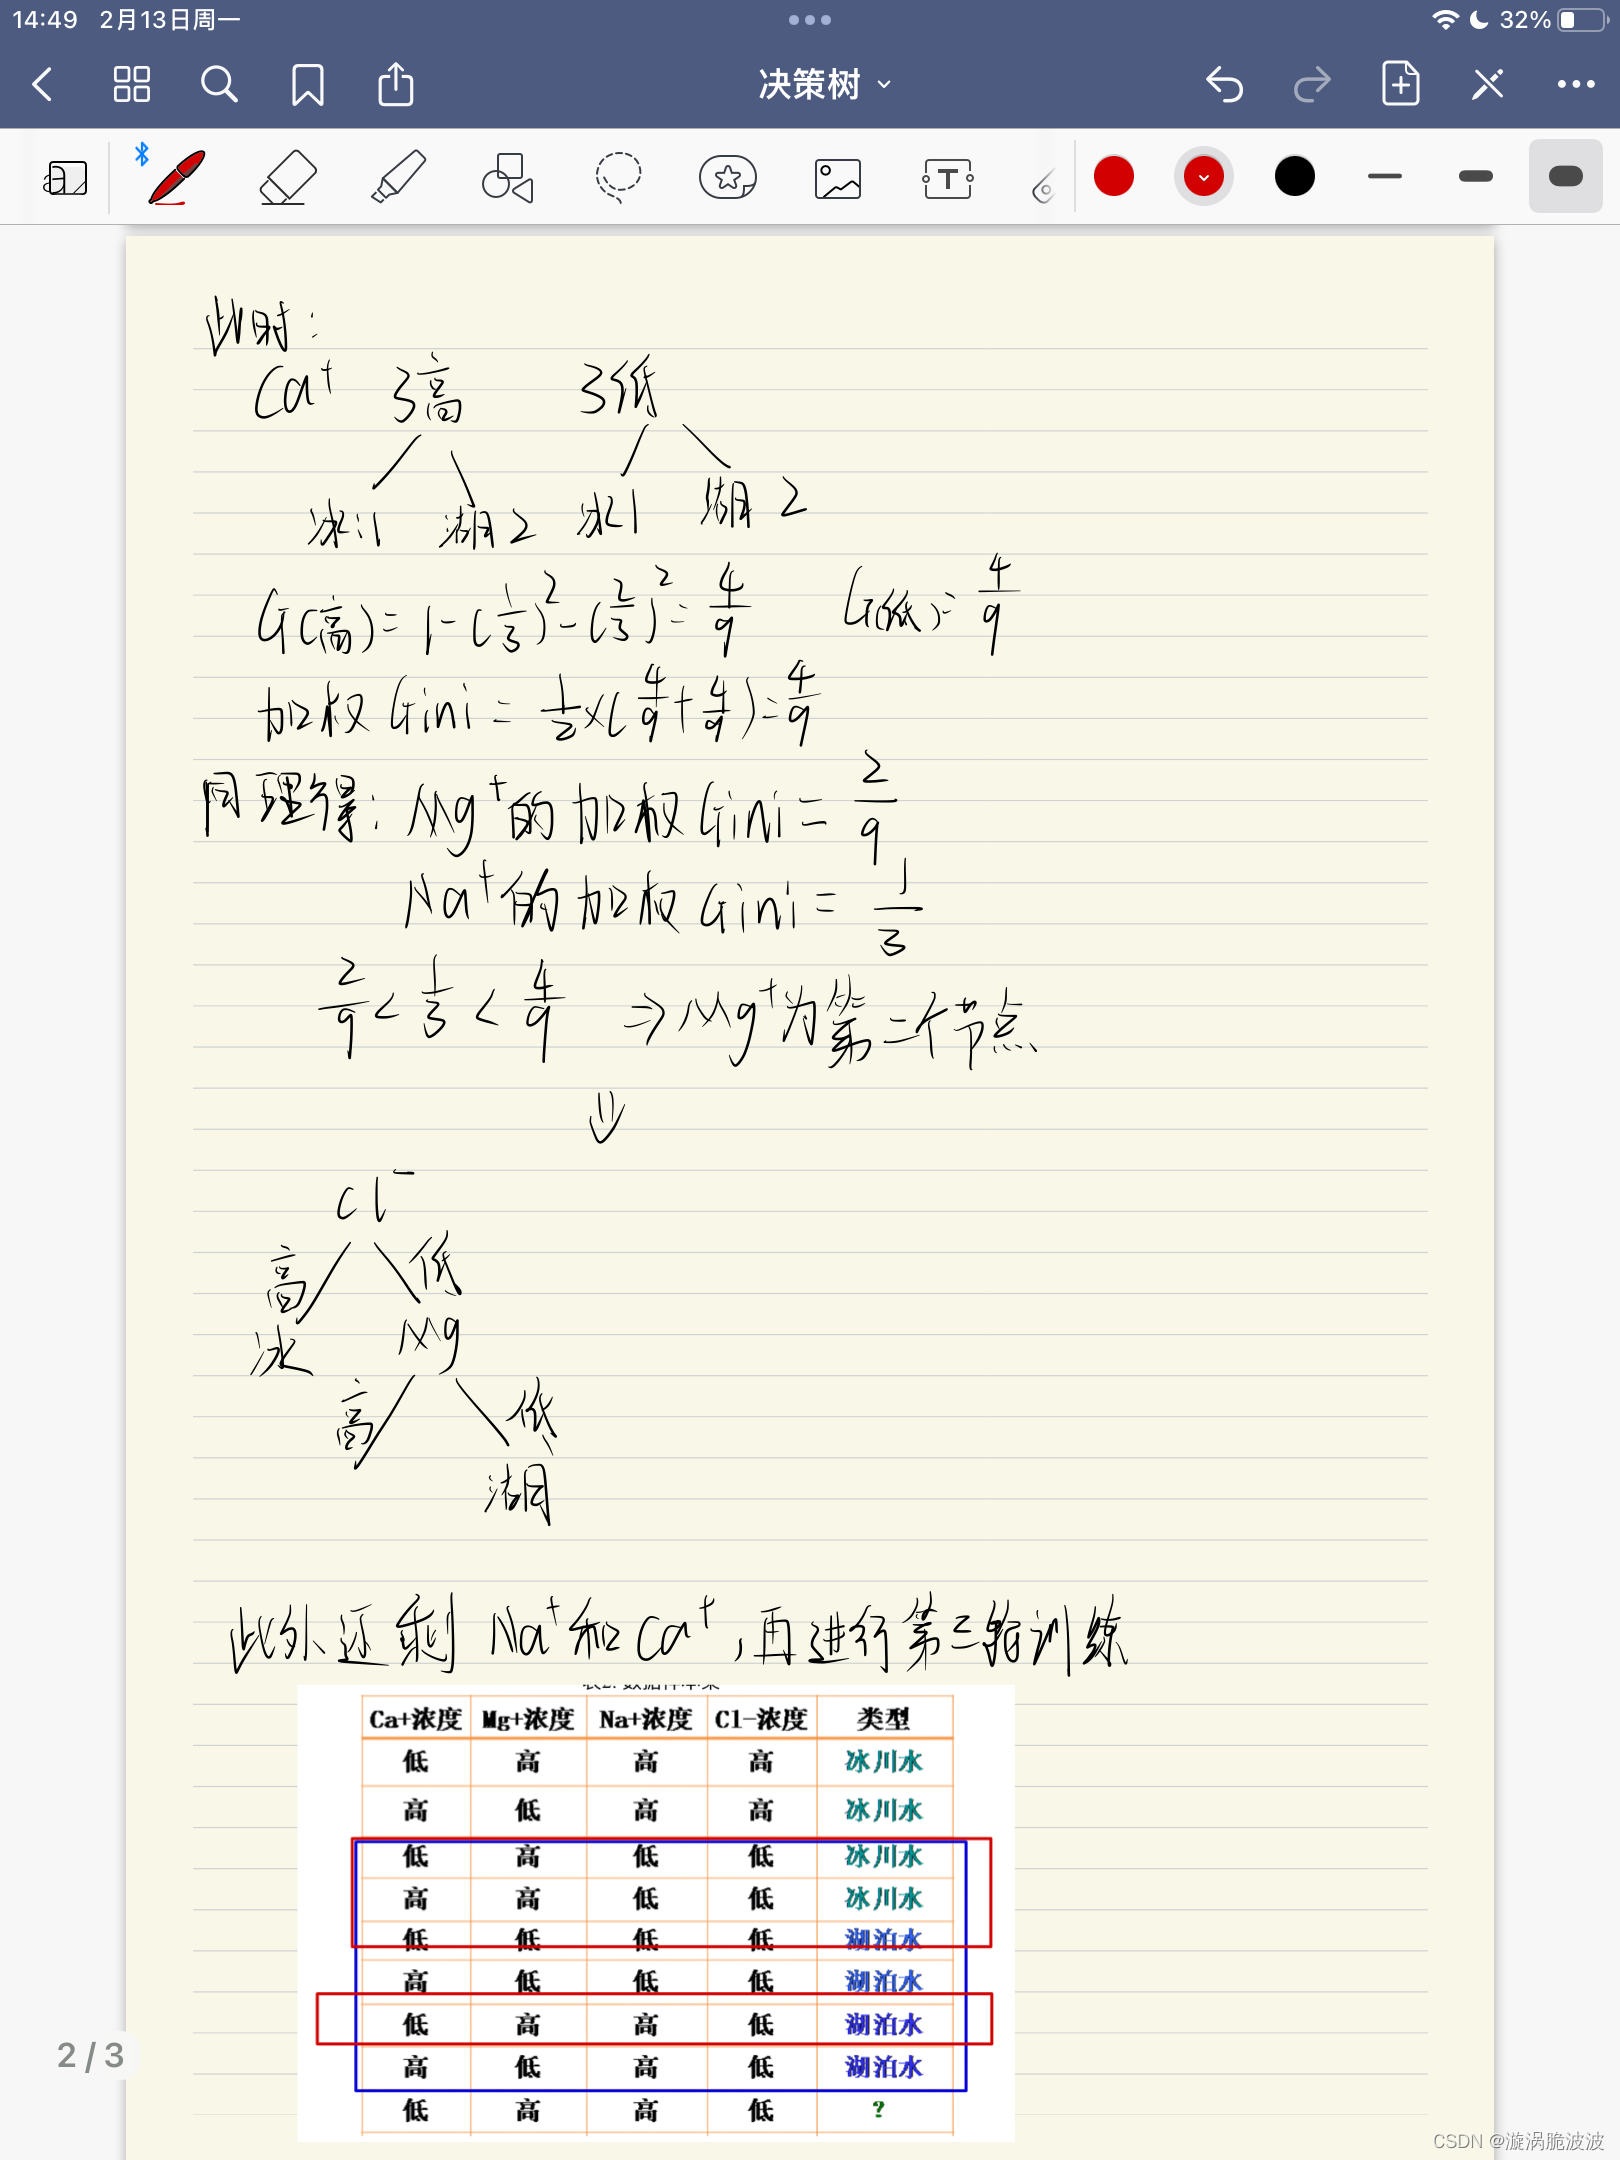 14:49 2月13日周一
32%
决策树
此时:
Ca⁺ 3高 3低
冰:1 湖2 冰1 湖2
G(高)=1-(1/3)²-(2/3)²=4/9 G(低)=4/9
加权Gini=1/2×(4/9+4/9)=4/9
同理得:Mg⁺的加权Gini=2/9
Na⁺的加权Gini=1/3
2/9<1/3<4/9 ⇒Mg⁺为第二个节点
⇓
Cl⁻
高 低
冰 Mg
高 低
湖
此外还剩Na⁺和Ca⁺,再进行第三轮训练
Ca+浓度 Mg+浓度 Na+浓度 Cl-浓度 类型
低 高 高 高 冰川水
高 低 高 高 冰川水
低 高 低 低 冰川水
高 高 低 低 冰川水
低 低 低 低 湖泊水
高 低 低 低 湖泊水
低 高 高 低 湖泊水
高 低 高 低 湖泊水
低 高 高 低 ?
2/3
CSDN @漩涡脆波波